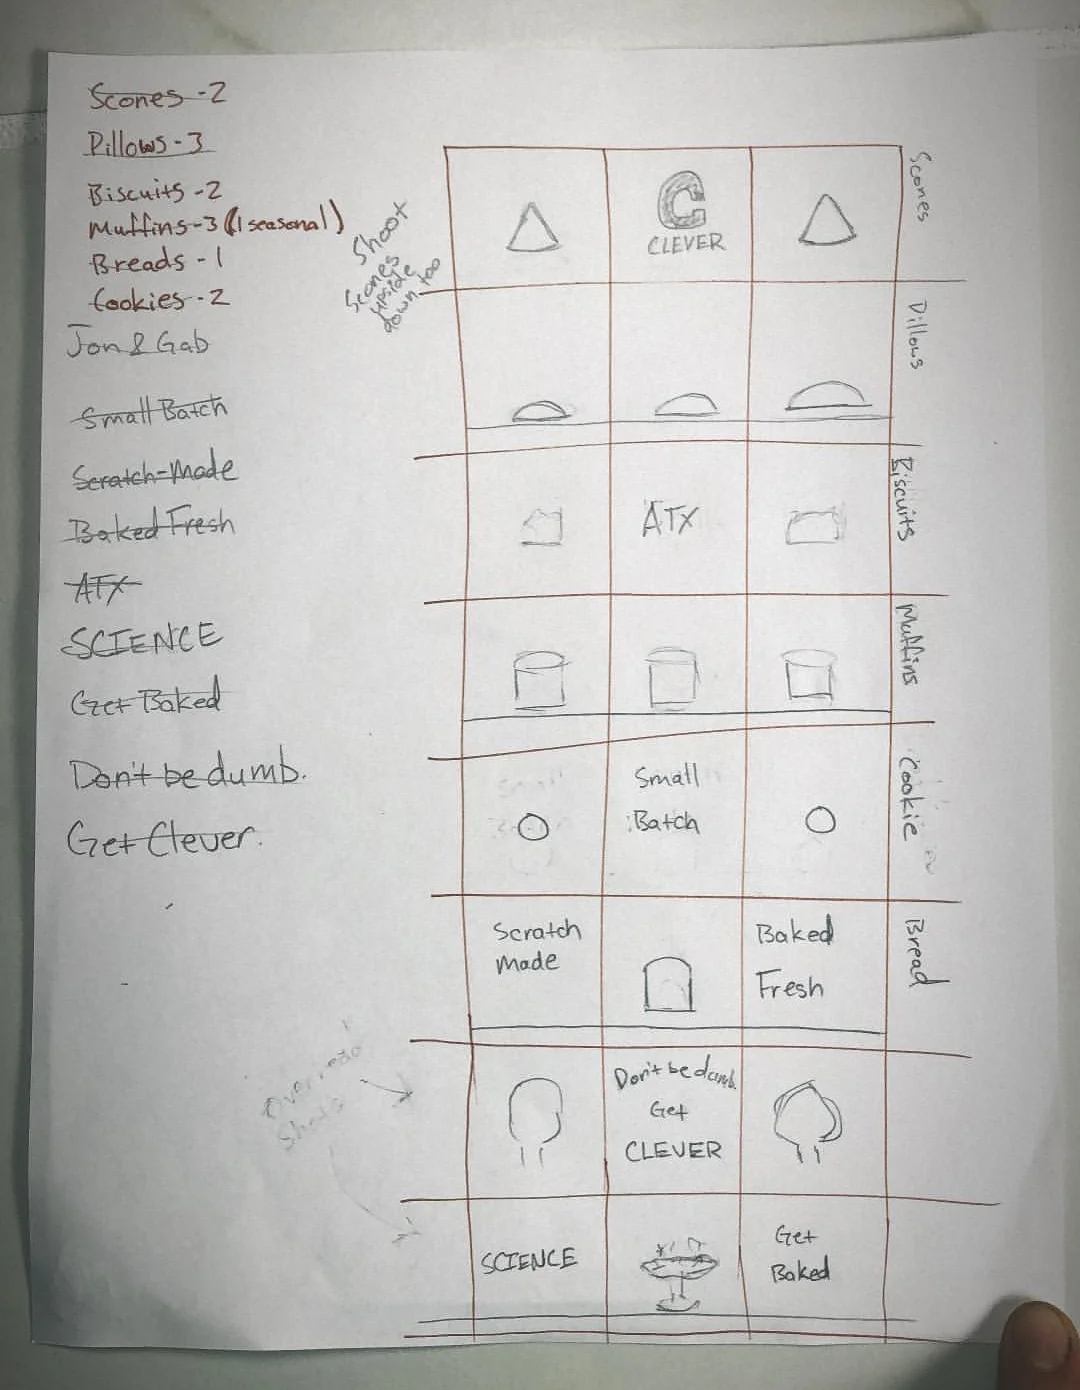 Scones - 2
Pillows - 3
Biscuits - 2
Muffins - 3 (1 seasonal)
Breads - 1
Cookies - 2
Jon & Gab
Small Batch
Scratch-Made
Baked Fresh
ATX
SCIENCE
Get Baked
Don't be dumb.
Get Clever.
Shoot
Scones
upside
down too
C
CLEVER
Scones
Pillows
ATX
Biscuits
Muffins
Small
Batch
Cookie
Scratch
Made
Baked
Fresh
Bread
Overhead
Shots
Don't be dumb.
Get
CLEVER
SCIENCE
Get
Baked